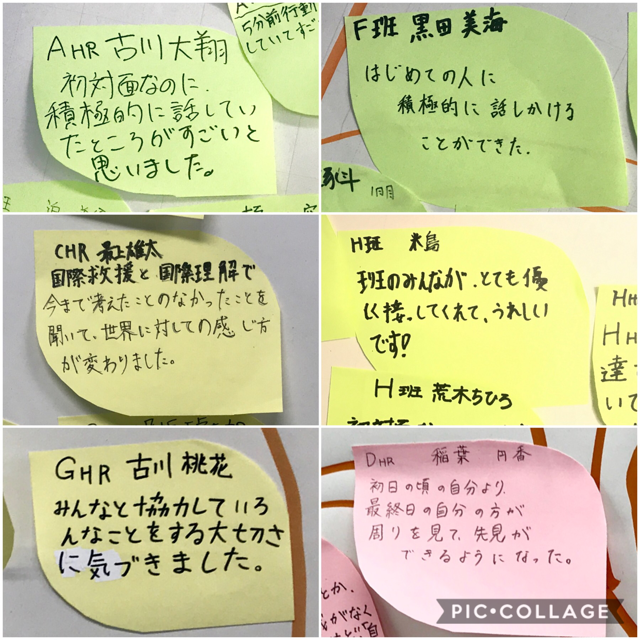 AHR 古川大翔
初対面なのに、
積極的に話してい
たところがすごいと
思いました。
5分前行動
していてすご
F班 黒田美海
はじめての人に
積極的に話しかける
ことができた.
CHR 最上雄太
国際救援と国際理解で
今まで考えたことのなかったことを
聞いて、世界に対しての感じ方
が変わりました。
H班 米島
班のみんなが、とても優
しく接してくれて、うれしい
です!
H班 荒木ちひろ
GHR 古川桃花
みんなと協力していろ
んなことをする大切さ
に気づきました。
DHR 稲葉 円香
初日の頃の自分より、
最終日の自分の方が
周りを見て、先見が
できるようになった。
とか、
がなく
PIC•COLLAGE